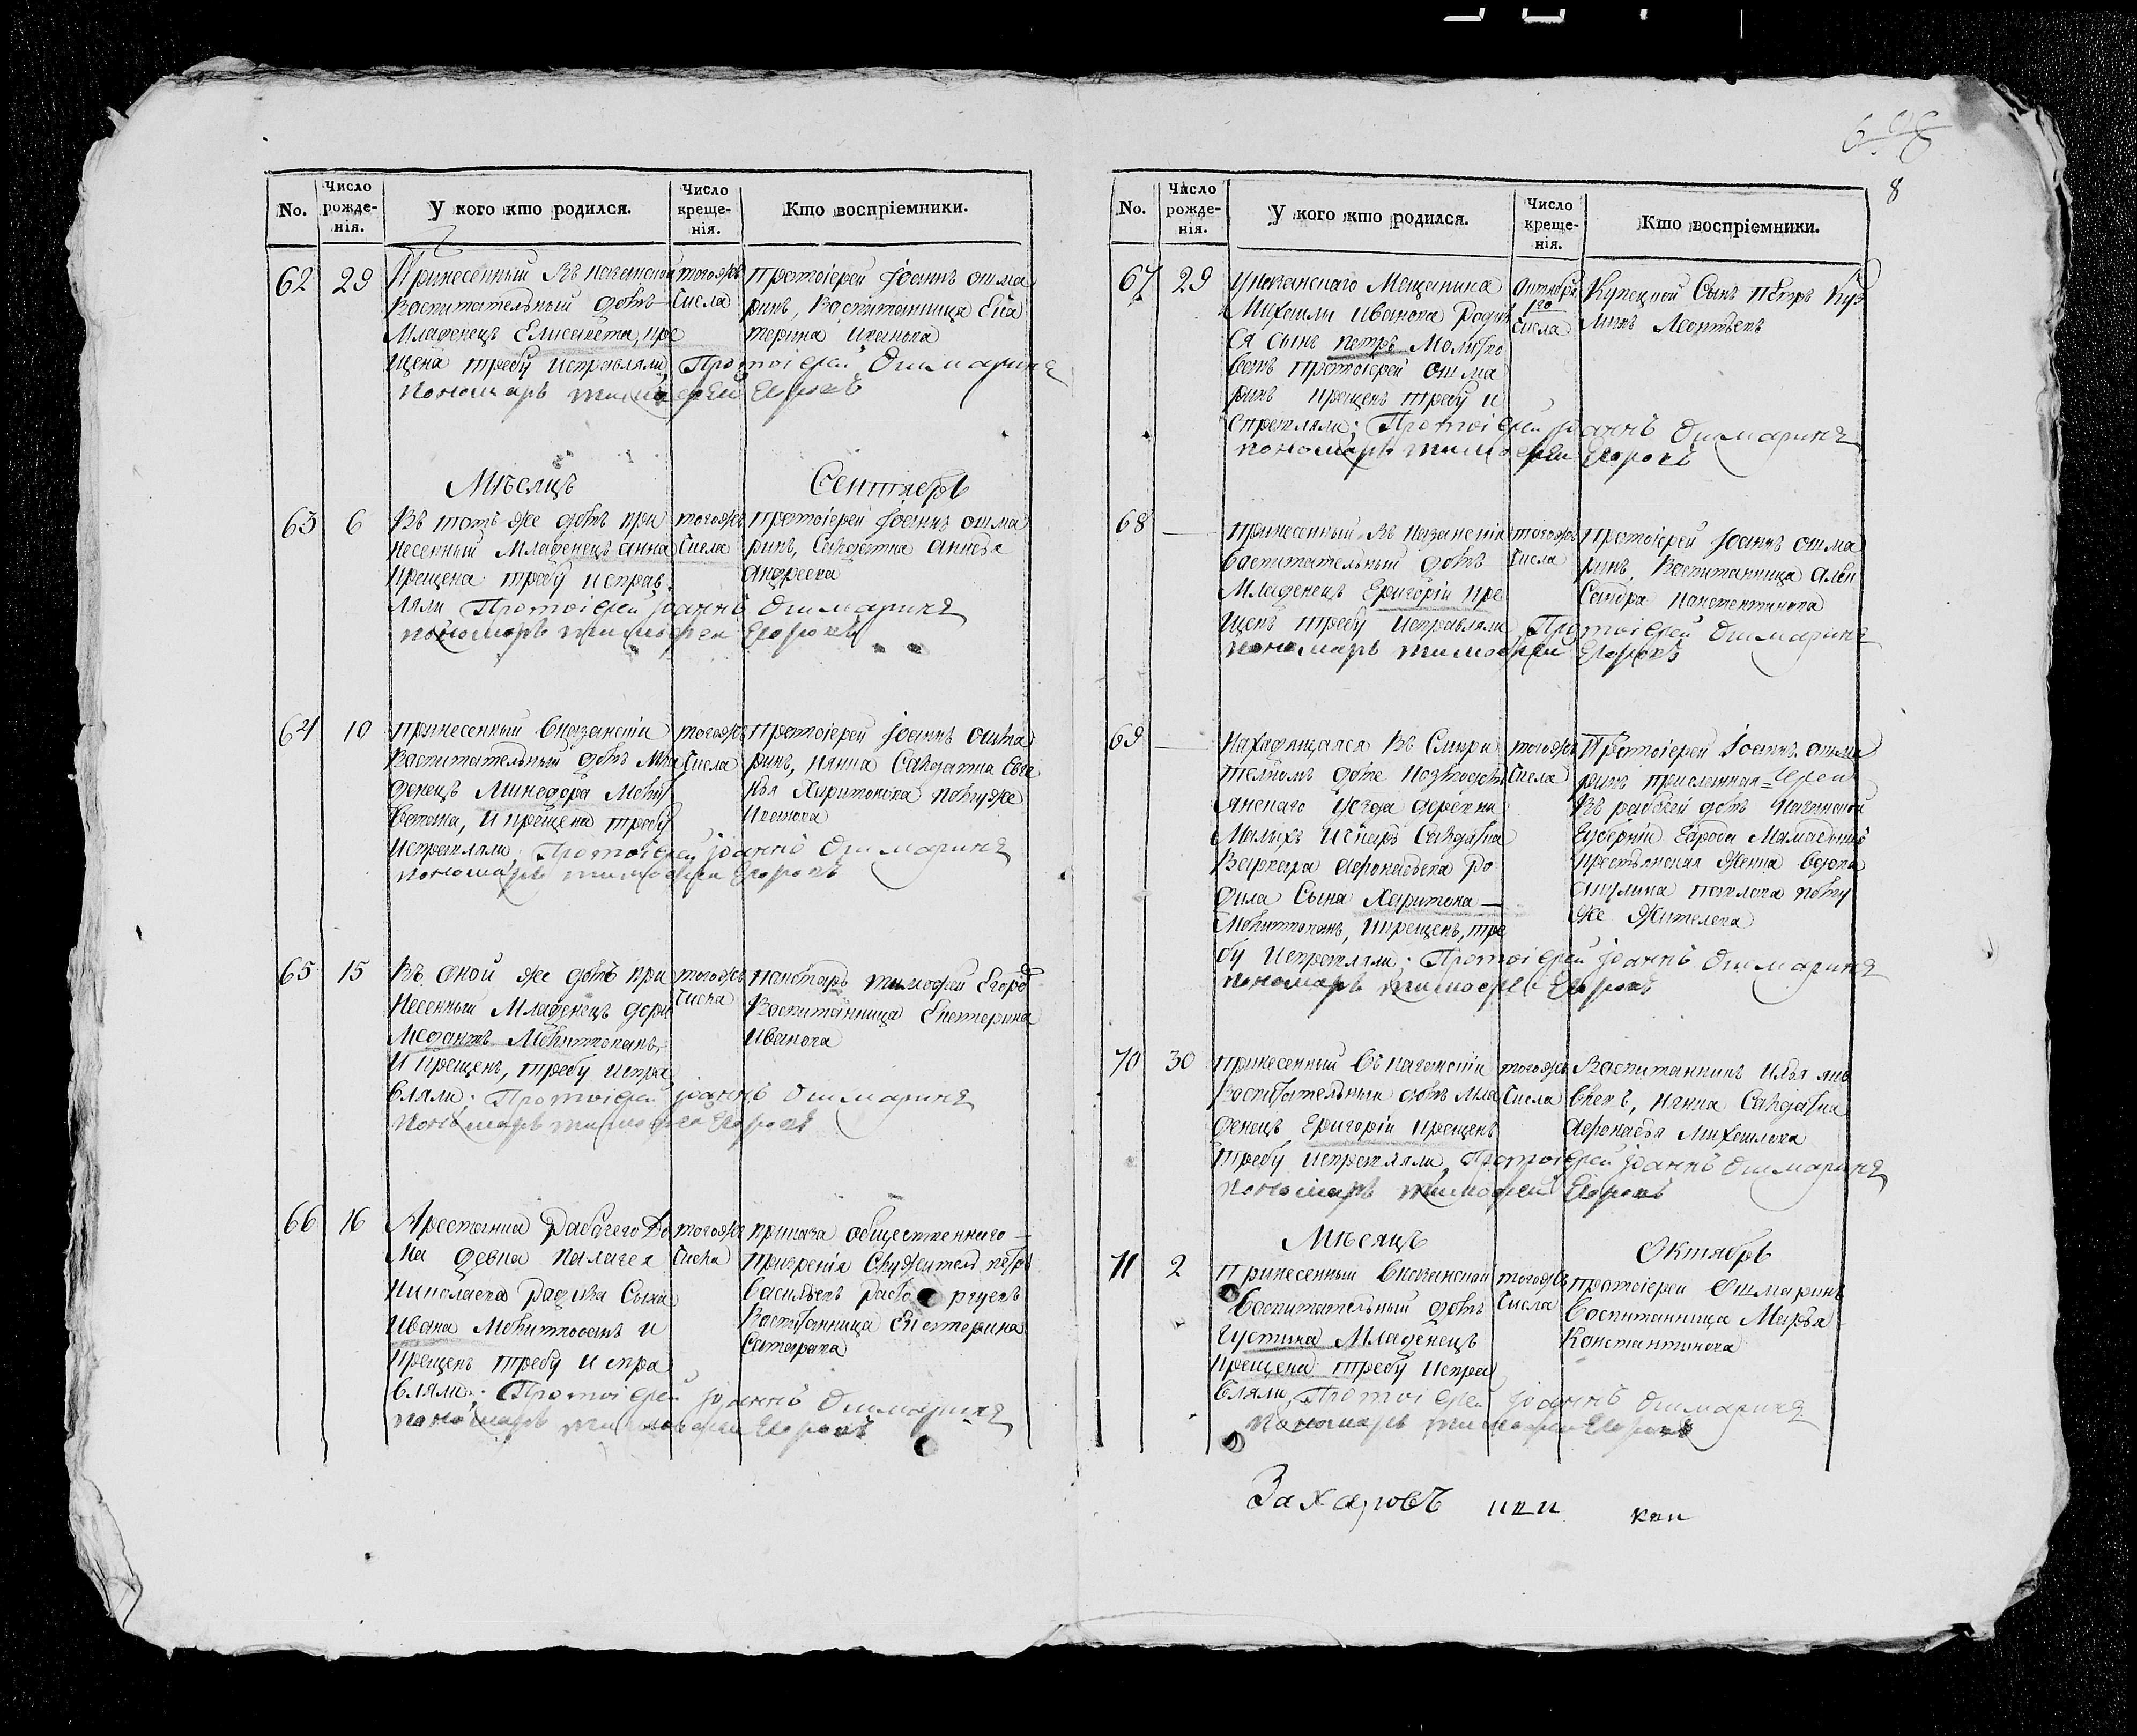 8
No.
Число рожде-нія.
У кого кто родился.
Число креще-нія.
Кто воспріемники.
62
29
Принесенный въ казанской
воспитательный домъ
Младенецъ Елисавета, кре
щена требу исправляли Протоіерей Ошмаринъ
пономарь тимофей Егоровъ
тогожъ
числа
протоіерей Іоаннъ ошма
ринъ, воспитанница Ека
терина иванова
Мѣсяцъ
Сентябрь
63
6
Въ тотъ же домъ при
несенный Младенецъ анна
крещена требу исправ
ляли Протоіерей Іоаннъ Ошмаринъ
пономарь тимофей Егоровъ
тогожъ
числа
протоіерей Іоаннъ ошма
ринъ, Салдатка
андреева
64
10
принесенный вказанскіи
воспитательный домъ Мла
денецъ Минодора Молит
вована, и крещена требу
исправляли Протоіерей Іоаннъ Ошмаринъ
пономарь тимофей Егоровъ
тогожъ
числа
протоіерей Іоаннъ ошма
ринъ, нянка Салдатка Евдо
кья Харитонова помужѣ
65
15
Въ оной же домъ при
несенный Младенецъ дори
медантъ Молитвованъ,
и крещенъ, требу испра
вляли: Протоіерей Іоаннъ Ошмаринъ
пономарь тимофей Егоровъ
тогожъ
числа
пономарь тимофей Егоро
воспитанница Екатерина
иванова
66
16
Арестанка Рабочего до
ма девка палагея
николаева Родила Сына
ивана Молитвованъ и
крещенъ требу испра
вляли: Протоіерей Іоаннъ Ошмаринъ
пономарь тимофей Егоровъ
тогожъ
числа
приказа общественнаго
призренія Служитель петръ
васильевъ
воспитанница Екатерина
67
29
указанскаго Мещанина
Михаилы иванова Родил
ся сынъ петръ Молитво
ванъ протоіерей ошма
ринъ крещенъ требу и
справляли: Протоіерей Іоаннъ Ошмаринъ
пономарь тимофей Егоровъ
Октября
числа
Купецкой Сынъ Петръ Куз
минъ Леонтьевъ
68
принесенный въ казанскіи
воспитательный домъ
Младенецъ Григорій кре
щенъ требу исправляли Протоіерей Ошмаринъ
пономарь тимофей Егоровъ
тогожъ
числа
протоіерей Іоаннъ ошма
ринъ, воспитанница Алек
сандра константинова
69
находящаяся въ Смири
телномъ доме
янскаго уезда деревни
Малыхъ Салдатка
Варвара Афонасьева Ро
дила Сына Харитона
Молитвованъ, икрещенъ, тре
бу исправляли: Протоіерей Іоаннъ Ошмаринъ
пономарь тимофей Егоровъ
тогожъ
числа
Протоіерей Іоаннъ ошма
ринъ присланная
въ рабочей домъ казанской
Губерніи города Мамадыша
крестьянская женка
акулина павлова помуу
же Жителева
70
30
принесенный въ казанскіи
воспитательныи домъ Мла
денецъ Григорій крещенъ
требу исправляли Протоіерей Іоаннъ Ошмаринъ
пономарь тимофей Егоровъ
тогожъ
числа
Воспитанникъ илья яко
влевъ, нянка Салдатка
Афонасья Михаилова
Мѣсяцъ
Октябрь
71
2
Принесенный вказанской
воспитательный домъ
Густина Младенецъ
крещена требу испра
вляли, Протоіерей Іоаннъ Ошмаринъ
пономарь тимофей Егоровъ
тогожъ
числа
протоіерей Ошмаринъ
воспитанница Марья
Константинова
Захаровъ